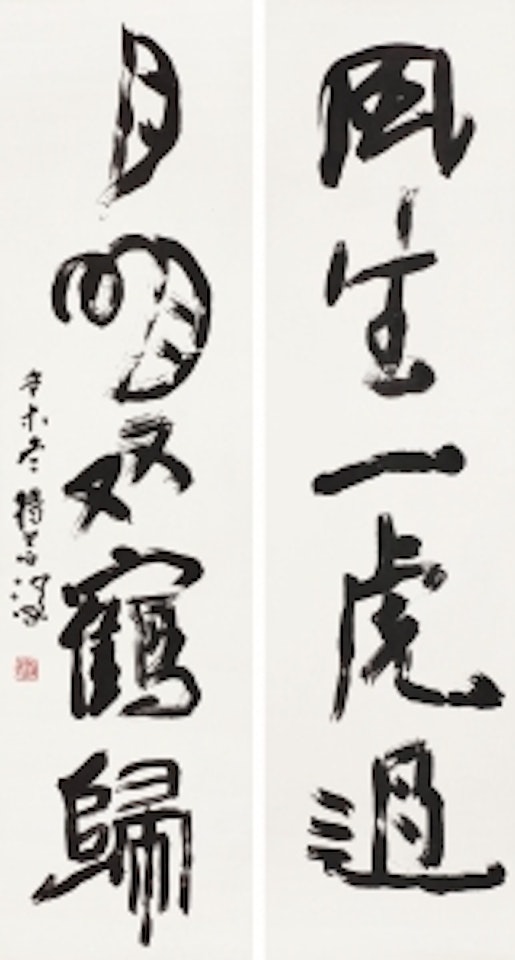 風生一虎過
月明双鶴歸
辛未冬